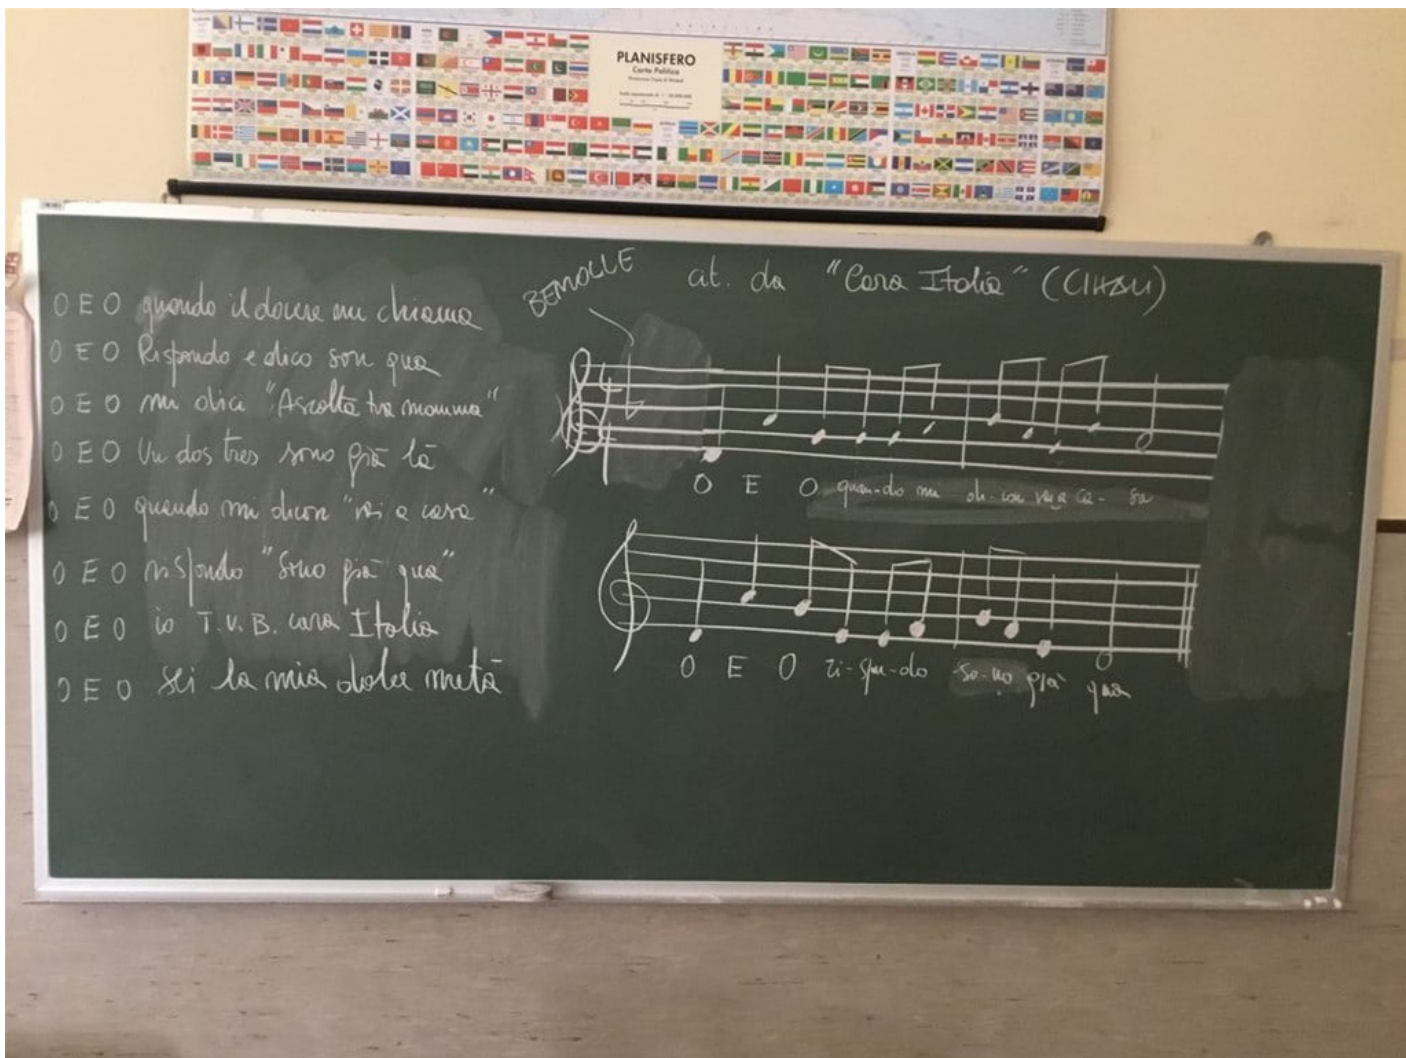 PLANISFERO
Carta Politica
O E O quando il dovere mi chiama
O E O Rispondo e dico son qua
O E O mi dici "Ascolta tua mamma"
O E O Un dos tres sono già là
O E O quando mi dicon "vai a casa"
O E O rispondo "Sono già qua"
O E O io T.V.B. cara Italia
O E O sei la mia dolce metà
BEMOLLE
cit. da "Cara Italia" (GHALI)
O E O quan-do mi di-con vai a ca- sa
O E O ri-spon-do so-no già qua